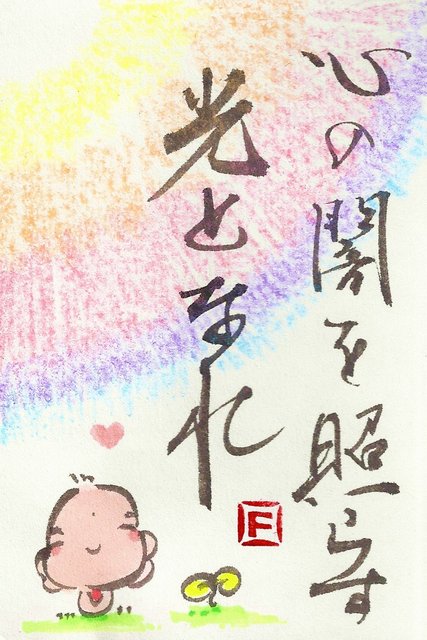 心の闇を照らす
光となれ
F